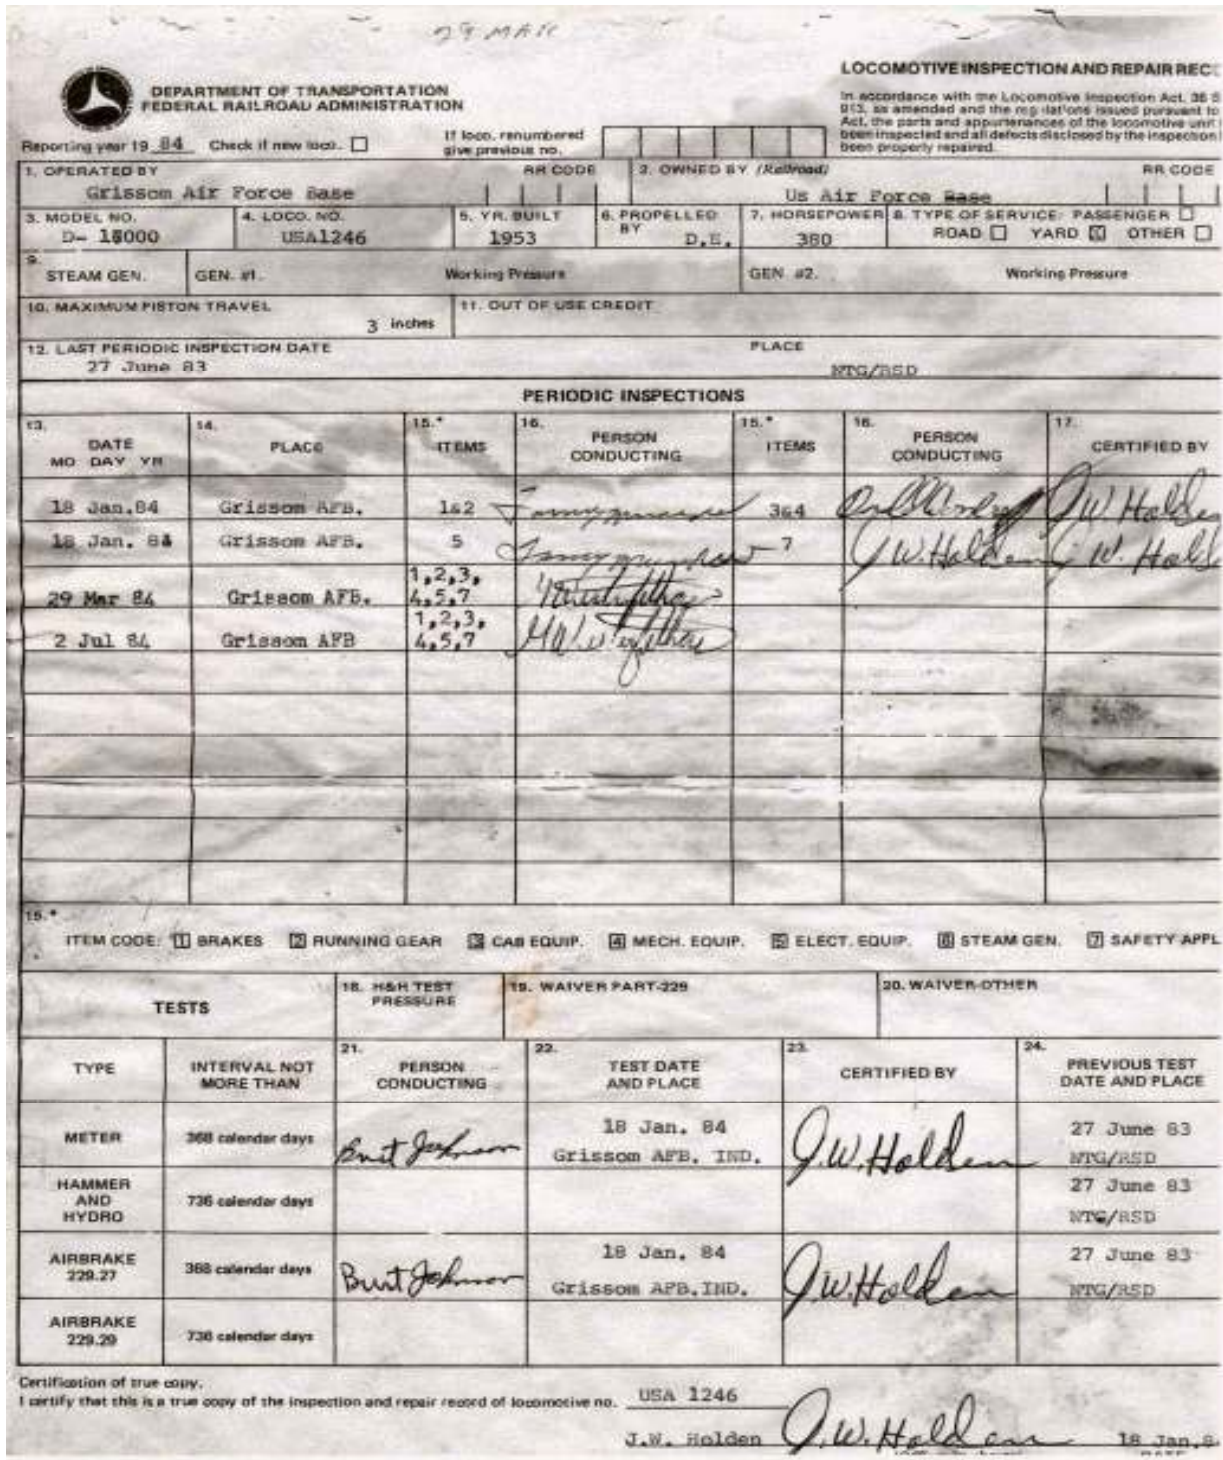 29 MAR
LOCOMOTIVE INSPECTION AND REPAIR REC
DEPARTMENT OF TRANSPORTATION
FEDERAL RAILROAD ADMINISTRATION
In accordance with the Locomotive Inspection Act, 36 S
913, as amended and the regulations issued pursuant to
Act, the parts and appurtenances of the locomotive unit
been inspected and all defects disclosed by the inspection
been properly repaired.
Reporting year 19 84 Check if new loco. If loco. renumbered give previous no.
1. OPERATED BY RR CODE 2. OWNED BY (Railroad) RR CODE
Grissom Air Force Base Us Air Force Base
3. MODEL NO. 4. LOCO. NO. 5. YR. BUILT 6. PROPELLED BY 7. HORSEPOWER 8. TYPE OF SERVICE: PASSENGER
ROAD YARD OTHER
USA1246 1953 D.E. 380
9. STEAM GEN. GEN. #1. Working Pressure GEN #2. Working Pressure
10. MAXIMUM PISTON TRAVEL 11. OUT OF USE CREDIT
3 inches
12. LAST PERIODIC INSPECTION DATE PLACE
27 June 83 NTG/RSD
PERIODIC INSPECTIONS
13. DATE MO DAY YR 14. PLACE 15.* ITEMS 16. PERSON CONDUCTING 15.* ITEMS 16. PERSON CONDUCTING 17. CERTIFIED BY
18 Jan.84 Grissom AFB. 1&2 3&4 J.W. Holden
18 Jan. 84 Grissom AFB. 5 7 J.W. Holden J.W. Hold
29 Mar 84 Grissom AFB. 1,2,3, 4,5,7
2 Jul 84 Grissom AFB 1,2,3, 4,5,7
15.*
ITEM CODE: 1 BRAKES 2 RUNNING GEAR 3 CAB EQUIP. 4 MECH. EQUIP. 5 ELECT. EQUIP. 6 STEAM GEN. 7 SAFETY APPL
TESTS 18. H&H TEST PRESSURE 19. WAIVER PART-229 20. WAIVER-OTHER
TYPE INTERVAL NOT MORE THAN 21. PERSON CONDUCTING 22. TEST DATE AND PLACE 23. CERTIFIED BY 24. PREVIOUS TEST DATE AND PLACE
METER 368 calendar days Burt Johnson 18 Jan. 84 Grissom AFB. IND. J.W. Holden 27 June 83 NTG/RSD
HAMMER AND HYDRO 736 calendar days 27 June 83 NTG/RSD
AIRBRAKE 229.27 368 calendar days Burt Johnson 18 Jan. 84 Grissom AFB.IND. J.W. Holden 27 June 83 NTG/RSD
AIRBRAKE 229.29 736 calendar days
Certification of true copy.
I certify that this is a true copy of the inspection and repair record of locomotive no. USA 1246
J.W. Holden J.W. Holden 18 Jan.8
DATE